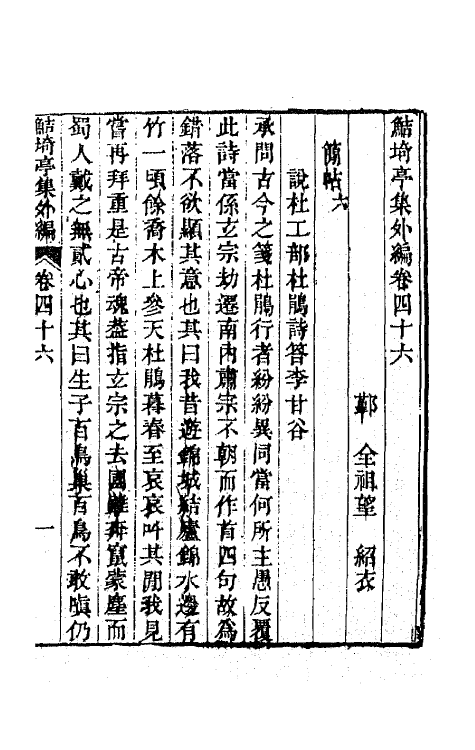 鮚埼亭集外編卷四十六
鄞　全祖望　紹衣
簡帖六
說杜工部杜鵑詩答李甘谷
承問古今之箋杜鵑行者紛紛異同當何所主愚反覆
此詩當係玄宗劫遷南內肅宗不朝而作首四句故爲
錯落不欲顯其意也其曰我昔遊錦城結廬錦水邊有
竹一頃餘喬木上參天杜鵑暮春至哀哀叫其閒我見
嘗再拜重是古帝魂蓋指玄宗之去國離奔竄蒙塵而
蜀人戴之無貳心也其曰生子百鳥巢百鳥不敢嗔仍
鮚埼亭集外編　卷四十六　一